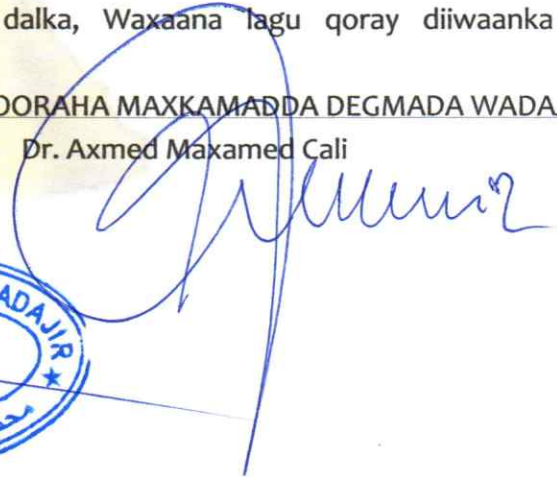 dalka, Waxaana lagu qoray diiwaanka
OORAHA MAXKAMADDA DEGMADA WADA
Dr. Axmed Maxamed Cali
ADAJIR ★